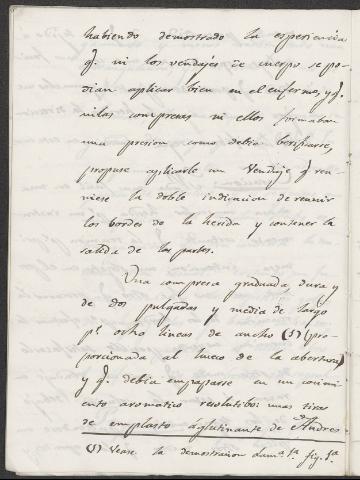 habiendo demostrado la esperiencia
q.e ni los vendajes de cuerpo se po-
dian aplicar bien en el enfermo, y q.e
ni las compresas ni ellos formaban
una presion como debia verificarse,
propuse aplicarle un Vendaje q.e reu-
niese la doble indicacion de reunir
los bordes de la herida y contener la
salida de las partes.
Una compresa graduada, dura y
de dos pulgadas y media de largo
p.r ocho lineas de ancho (5) (pro-
porcionada al hueco de la abertura)
y q.e debia empaparse en un cocimi-
ento aromatico resolutibo: unas tiras
de emplasto aglutinante de Andres
(5) Vease la demostracion Lam.a 1.a fig. 5.a